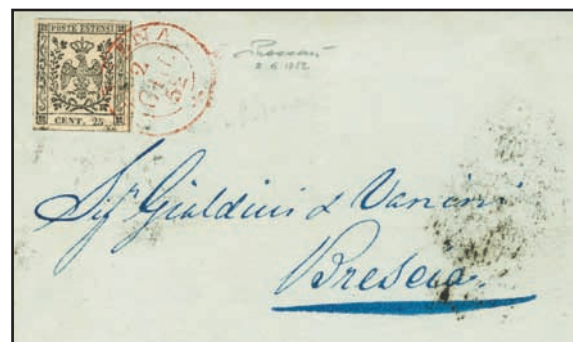 POSTE ESTENSI
CENT. 25
2 GIU 52
2 6 1852
Sig.ri Gialdini & Vanини
Brescia